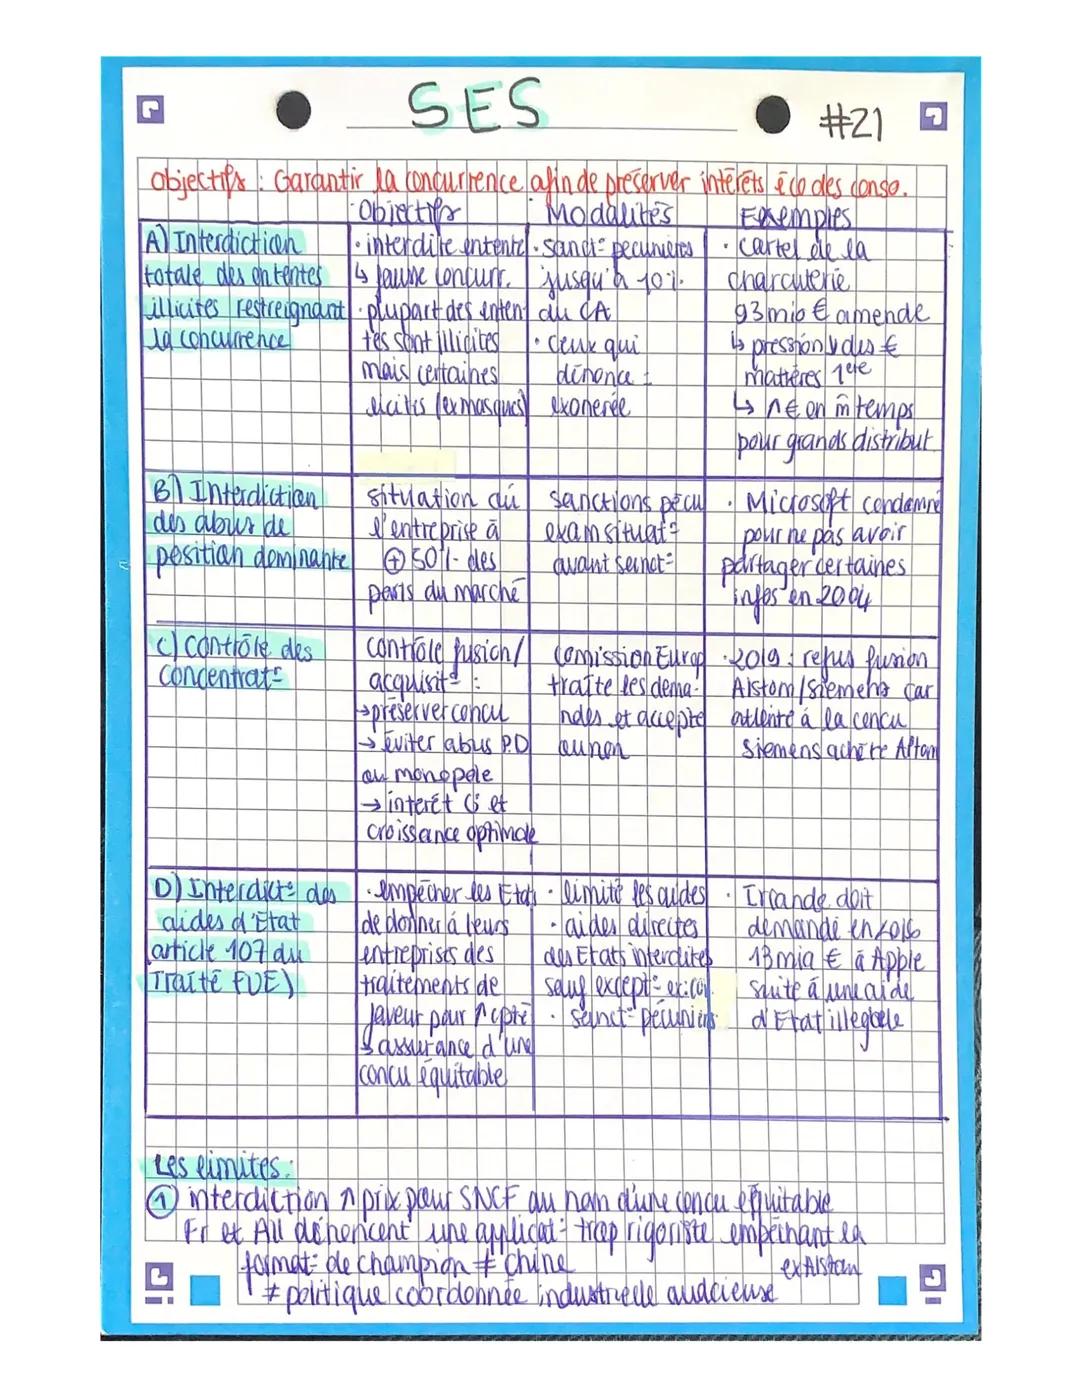 SES
#21
objectifs : Garantir la concurrence afin de préserver intérêts éco des conso.
Objectifs
Modalités
Exemples
A) Interdiction
totale des ententes
illicites restreignant
la concurrence
· interdire entente
↳ fausse concurr.
· plupart des enten
tes sont illicites
mais certaines
licites (ex masques)
· sanct° pecunières
jusqu'à 10%
du CA
· ceux qui
dénonce :
exonerée
· cartel de la
charcuterie
93 mio € amende
↳ pression ↓ des €
matières 1ère
↳ ↑ € en m̂ temps
pour grands distribut
B) Interdiction
des abus de
position dominante
situation où
l'entreprise à
⊕ 50% des
parts du marché
sanctions pécu
exam situat°
avant sanct°
· Microsoft condamné
pour ne pas avoir
partager certaines
infos en 2004
C) contrôle des
concentrat°
contrôle fusion/
acquisit° :
→ préserver concu
→ éviter abus P.D
ou monopole
→ intérêt et
croissance optimale
Comission Europ
traite les dema-
ndes et accepte
ou non
· 2019 : refus fusion
Alstom/Siemens car
atteinte à la concu
Siemens achète Alstom
D) Interdict° des
aides d'Etat
(article 107 du
Traité FUE)
· empêcher les Etats
de donner à leurs
entreprises des
traitements de
faveur pour ↑ cpté
↳ assurance d'une
concu équitable
· limité les aides
· aides directes
des Etats interdites
sauf except°
· sanct° pécunièrs
· Irlande doit
demandé en 2016
13 mia € à Apple
suite à une aide
d'Etat illégale
Les limites :
① interdiction ↑ prix pour SNCF au nom d'une concu équitable
Fr et All dénoncent une applicat° trop rigoriste empêchant la
format° de champion ≠ Chine
ex Alstom
≠ politique coordonnée industrielle audacieuse